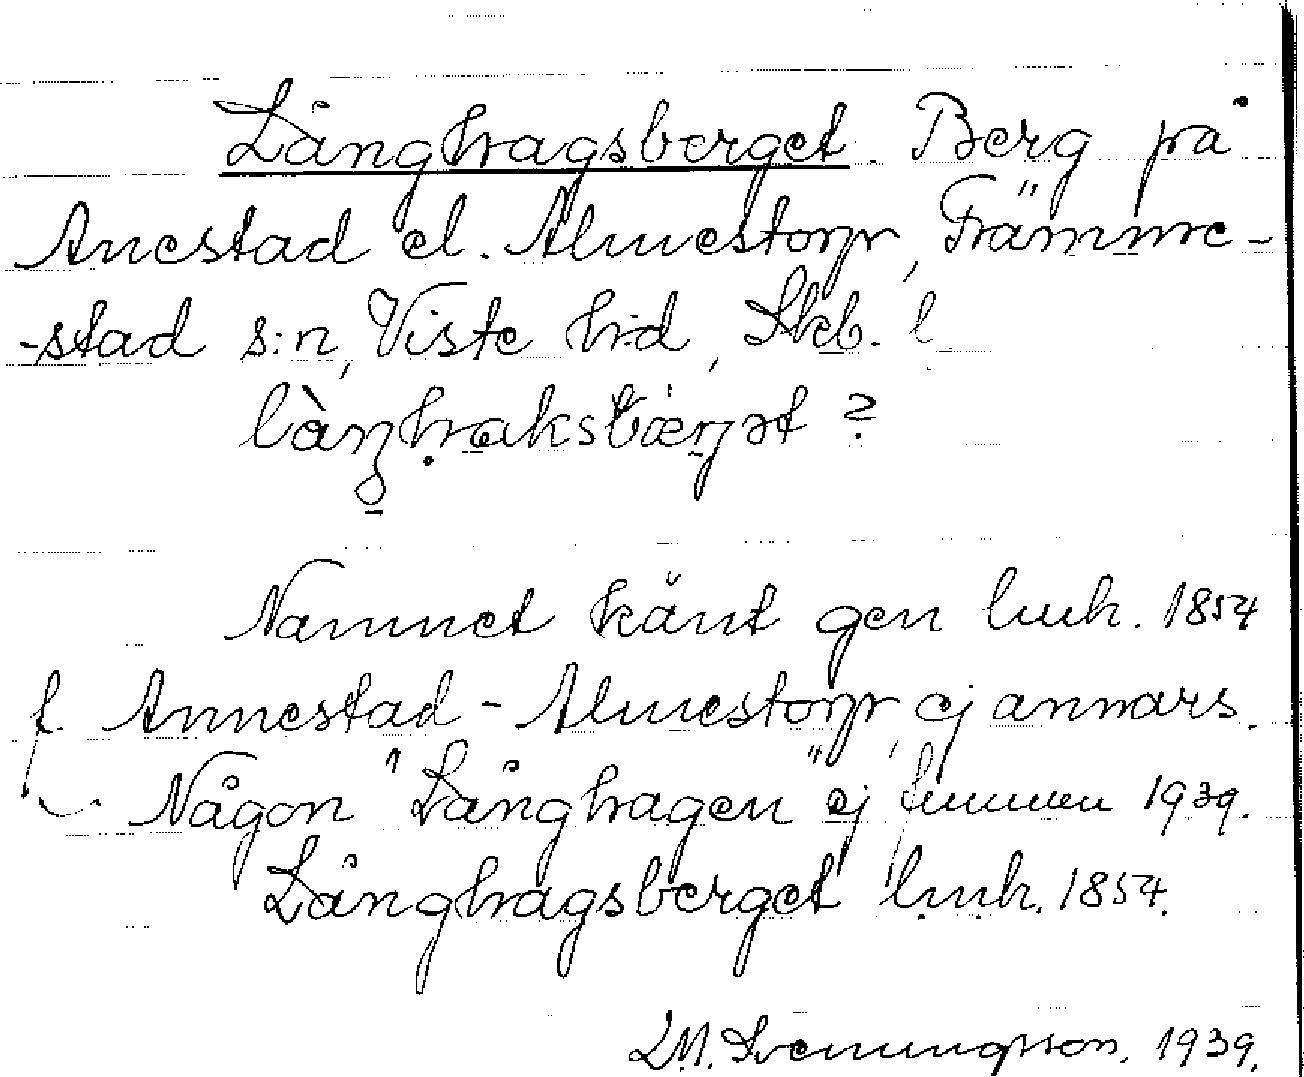 Långhagsberget. Berg på
Anestad el. Almestorp, Främme-
-stad s:n, Viste hd, Skb. l
Namnet känt gen lmh. 1854
f. Annestad - Almestorp, ej annars.
Någon "Långhagen" ej funnen 1939.
Långhagsberget lmh. 1854.
L.M. Svenungsson. 1939.